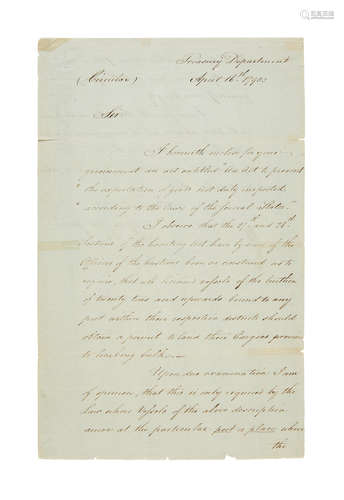 Treasury Department
(Circular) April 16th 1790.
Sir
I herewith enclose for your
government an act entitled "An Act to prevent
"the exportation of goods not duly inspected
"according to the laws of the several States."
I observe that the 27th and 28th
Sections of the Coasting Act have by some of the
Officers of the Customs been so construed as to
require, that all licensed vessels of the burthen
of twenty tons and upwards bound to any
port within their respective districts should
obtain a permit to land their Cargoes previous
to breaking bulk.
Upon due examination I am
of opinion, that this is only required by the
Law where Vessels of the above description
arrive at the particular port or place where
the